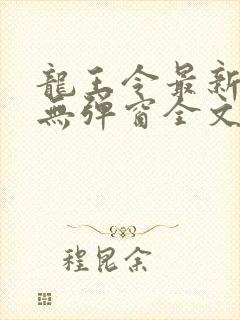 龍王令最新
無彈窗全文
程昆余